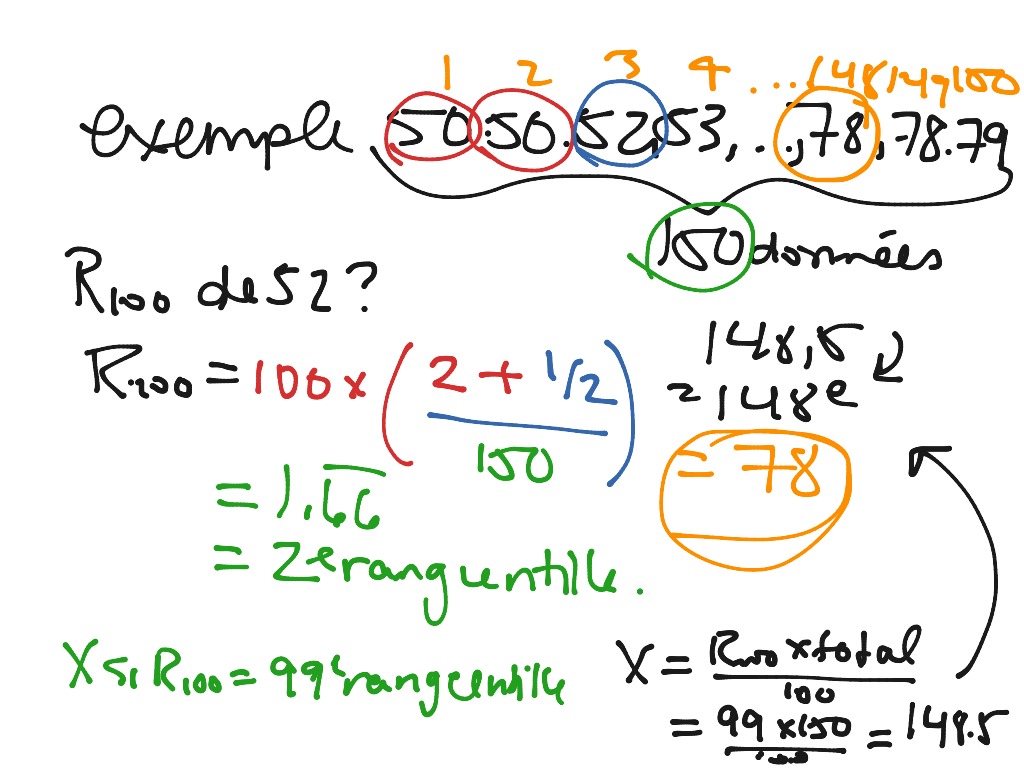 1 2 3 4 ... 148 149 100
exemple 50.50.52,53, ..., 78, 78.79
150 données
R100 de 52?
R100 = 100 x ( 2 + 1/2 / 150 )
= 1,66
= 2e rang centile.
148,5
= 148e
= 78
X si R100 = 99e rang centile
X = R100 x total / 100
= 99 x 150 / 100 = 148.5